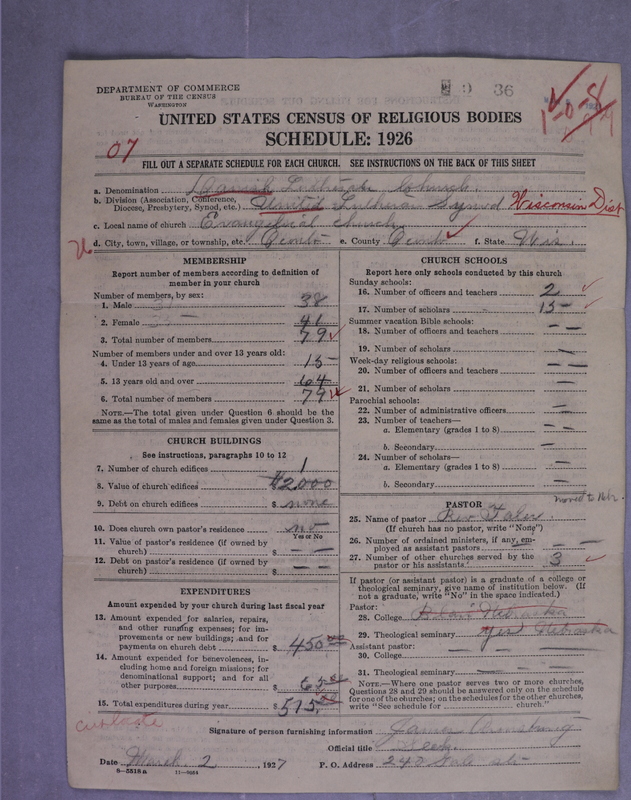 DEPARTMENT OF COMMERCE
BUREAU OF THE CENSUS
WASHINGTON
9 36
UNITED STATES CENSUS OF RELIGIOUS BODIES
SCHEDULE: 1926
07
FILL OUT A SEPARATE SCHEDULE FOR EACH CHURCH. SEE INSTRUCTIONS ON THE BACK OF THIS SHEET
a. Denomination Danish Lutheran Church.
b. Division (Association, Conference, Diocese, Presbytery, Synod, etc.) United Lutheran Synod Wisconsin Dist
c. Local name of church Evangelical church
d. City, town, village, or township, etc. Oconto e. County Oconto f. State Wis.
MEMBERSHIP
Report number of members according to definition of
member in your church
Number of members, by sex:
1. Male 38
2. Female 41
3. Total number of members 79
Number of members under and over 13 years old:
4. Under 13 years of age 15
5. 13 years old and over 64
6. Total number of members 79
NOTE.—The total given under Question 6 should be
same as the total of males and females given under Question 3.
CHURCH BUILDINGS
See instructions, paragraphs 10 to 12
7. Number of church edifices 1
8. Value of church edifices $2000
9. Debt on church edifices $ none
10. Does church own pastor's residence? no
Yes or No
11. Value of pastor's residence (if owned by
church) $ — —
12. Debt on pastor's residence (if owned by
church) $ — —
EXPENDITURES
Amount expended by your church during last fiscal year
13. Amount expended for salaries, repairs,
and other running expenses; for im-
provements or new buildings; and for
payments on church debt $ 450.00
14. Amount expended for benevolences, in-
cluding home and foreign missions; for
denominational support; and for all
other purposes $ 65.00
15. Total expenditures during year $ 515.00
CHURCH SCHOOLS
Report here only schools conducted by this church
Sunday schools:
16. Number of officers and teachers 2
17. Number of scholars 15
Summer vacation Bible schools:
18. Number of officers and teachers — —
19. Number of scholars —
Week-day religious schools:
20. Number of officers and teachers — —
21. Number of scholars —
Parochial schools:
22. Number of administrative officers —
23. Number of teachers—
a. Elementary (grades 1 to 8) — —
b. Secondary —
24. Number of scholars—
a. Elementary (grades 1 to 8) —
b. Secondary —
PASTOR
25. Name of pastor Rev
(If church has no pastor, write "None")
26. Number of ordained ministers, if any, em-
ployed as assistant pastors — —
27. Number of other churches served by the
pastor or his assistants 3
If pastor (or assistant pastor) is a graduate of a college or
theological seminary, give name of institution below. (If
not a graduate, write "No" in the space indicated.)
Pastor:
28. College Nebraska
29. Theological seminary Yes Nebraska
Assistant pastor:
30. College
31. Theological seminary
NOTE.—Where one pastor serves two or more churches,
Questions 28 and 29 should be answered only on the schedule
for one of the churches; on the schedules for the other churches,
write "See schedule for church."
Signature of person furnishing information James Armstrong
Official title
Date March 2, 1927 P. O. Address
8—5518a 11—9051